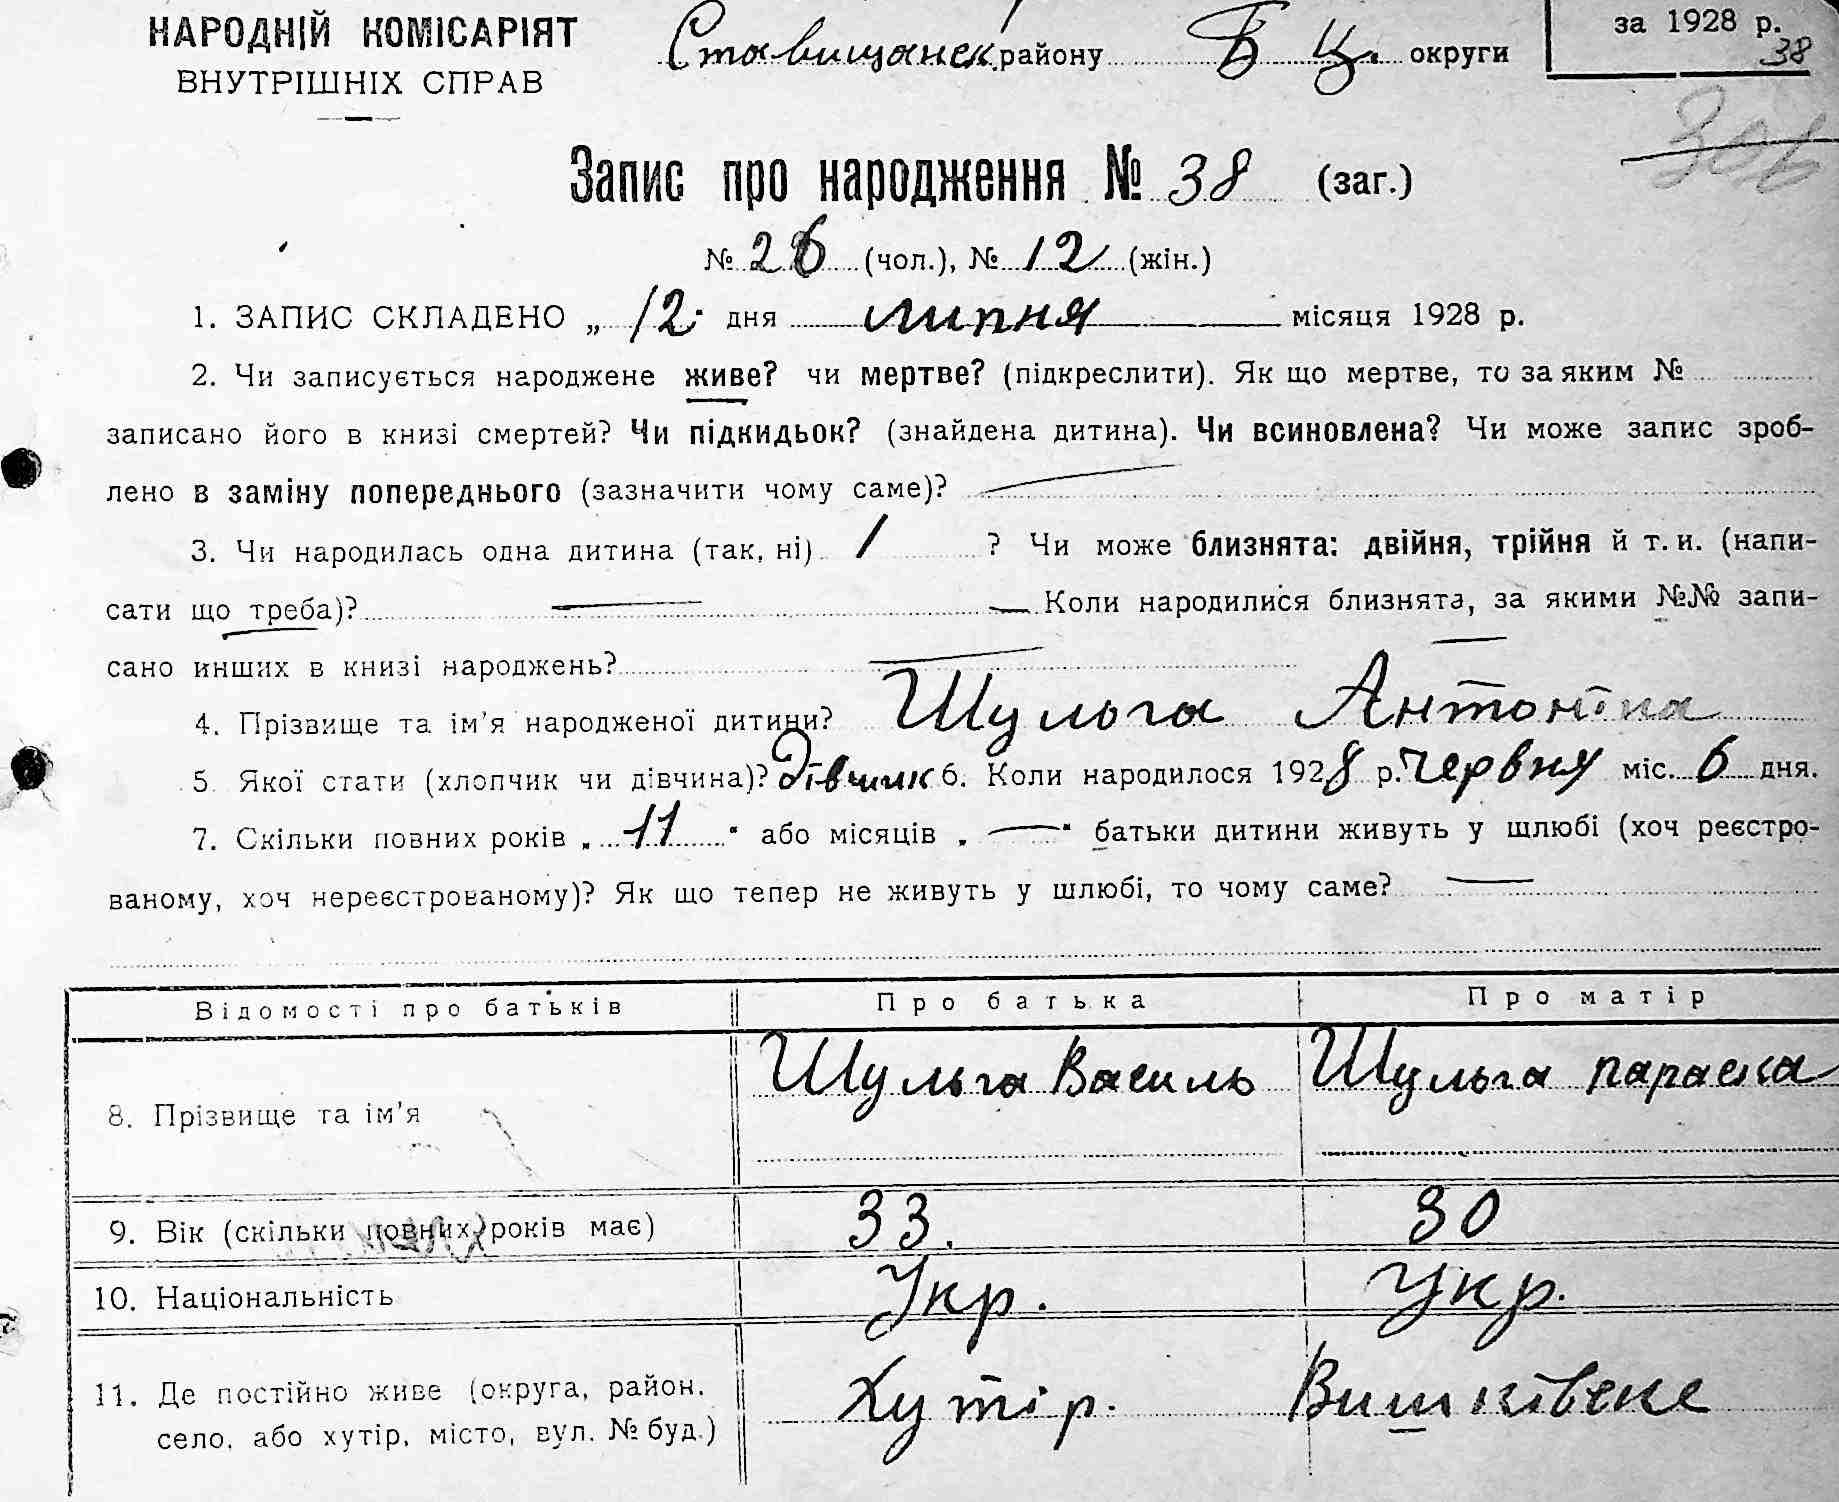 НАРОДНІЙ КОМІСАРІЯТ
ВНУТРІШНІХ СПРАВ
Ставищанск. району Б Ц. округи
за 1928 р.
38
306
Запис про народження № 38 (заг.)
№ 26 (чол.), № 12 (жін.)
1. ЗАПИС СКЛАДЕНО „ 12 " дня липня місяця 1928 р.
2. Чи записується народжене живе? чи мертве? (підкреслити). Як що мертве, то за яким №
записано його в книзі смертей? Чи підкидьок? (знайдена дитина). Чи всиновлена? Чи може запис зроб-
лено в заміну попереднього (зазначити чому саме)? —
3. Чи народилась одна дитина (так, ні) 1 ? Чи може близнята: двійня, трійня й т. и. (напи-
сати що треба)? — Коли народилися близнята, за якими №№ запи-
сано инших в книзі народжень? —
4. Прізвище та ім'я народженої дитини? Шульга Антоніна
5. Якої стати (хлопчик чи дівчина)? Дівчик 6. Коли народилося 1928 р. червня міс. 6 дня.
7. Скільки повних років „ 11 " або місяців „ — " батьки дитини живуть у шлюбі (хоч реєстро-
ваному, хоч нереєстрованому)? Як що тепер не живуть у шлюбі, то чому саме? —
Відомості про батьків Про батька Про матір
8. Прізвище та ім'я Шульга Василь Шульга Параска
9. Вік (скільки повних років має) 33. 30
10. Національність Укр. Укр.
11. Де постійно живе (округа, район, село, або хутір, місто, вул. № буд.) Хутір. Вишківске